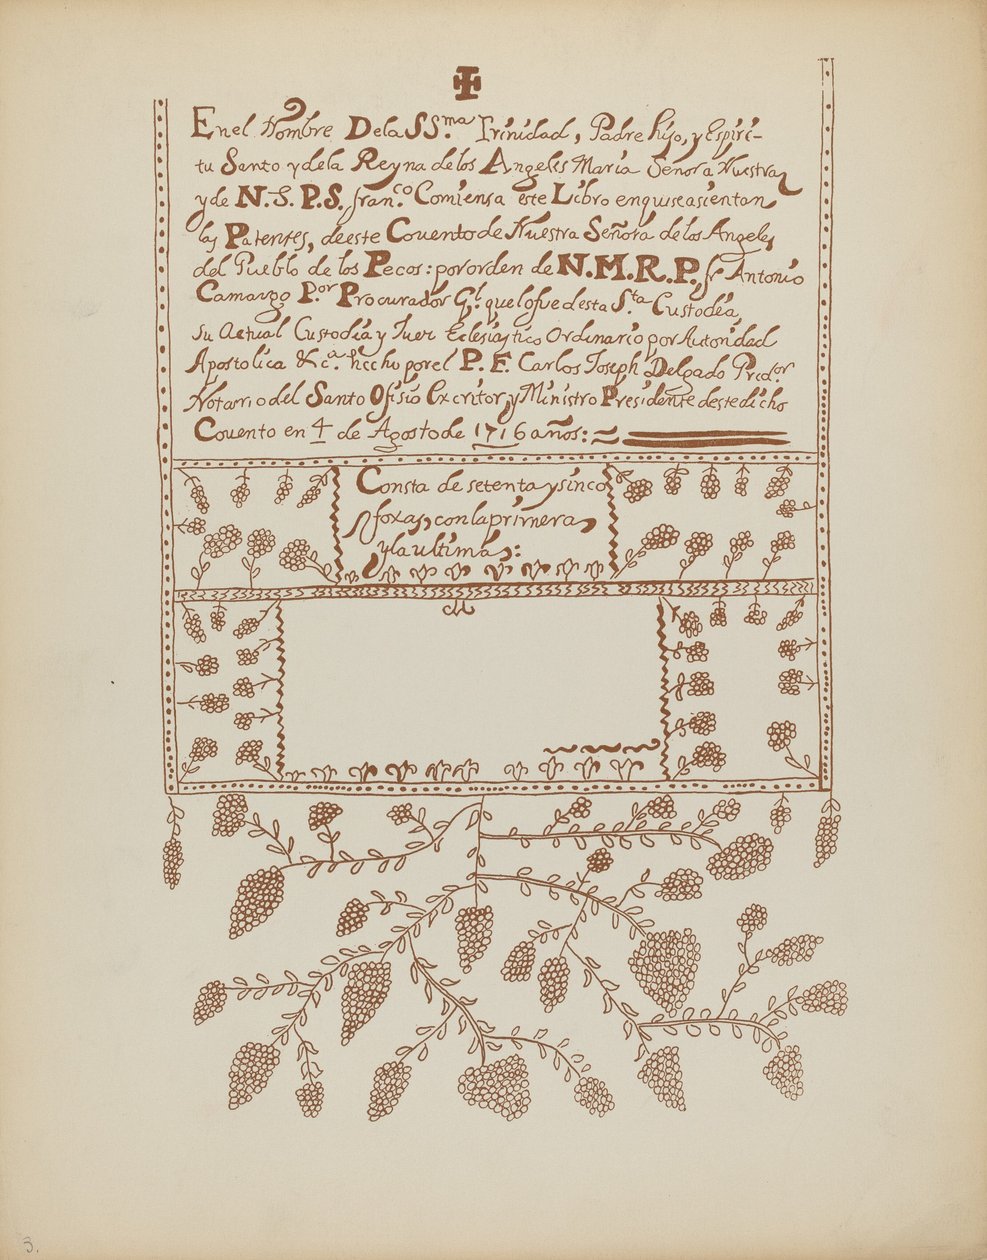 En el Nombre De la SS.ma Trinidad, Padre hijo, y Espiri-
tu Santo y de la Reyna de los Angeles Maria Señora Nuestra
y de N. S. P. S. fran.co Comiensa este Libro en quiseasientan
las Patentes, de este Covento de Nuestra Señora de los Angeles
del Pueblo de los Pecos: por orden de N. M. R. P. fr Antonio
Camargo P.or Procurador G.l que lo fue desta S.ta Custodia,
su Actual Custodia y Juez Eclesiastico Ordinario por Autoridad
Apostolica &c.a hecho por el P. F. Carlos Joseph Delgado Pred.or
Notario del Santo Ofisio Excritor, y Ministro Presidente deste dicho
Covento en 4 de Agosto de 1716 años:
Consta de setenta y sinco
foxas, con la primera
y la ultima:
3.